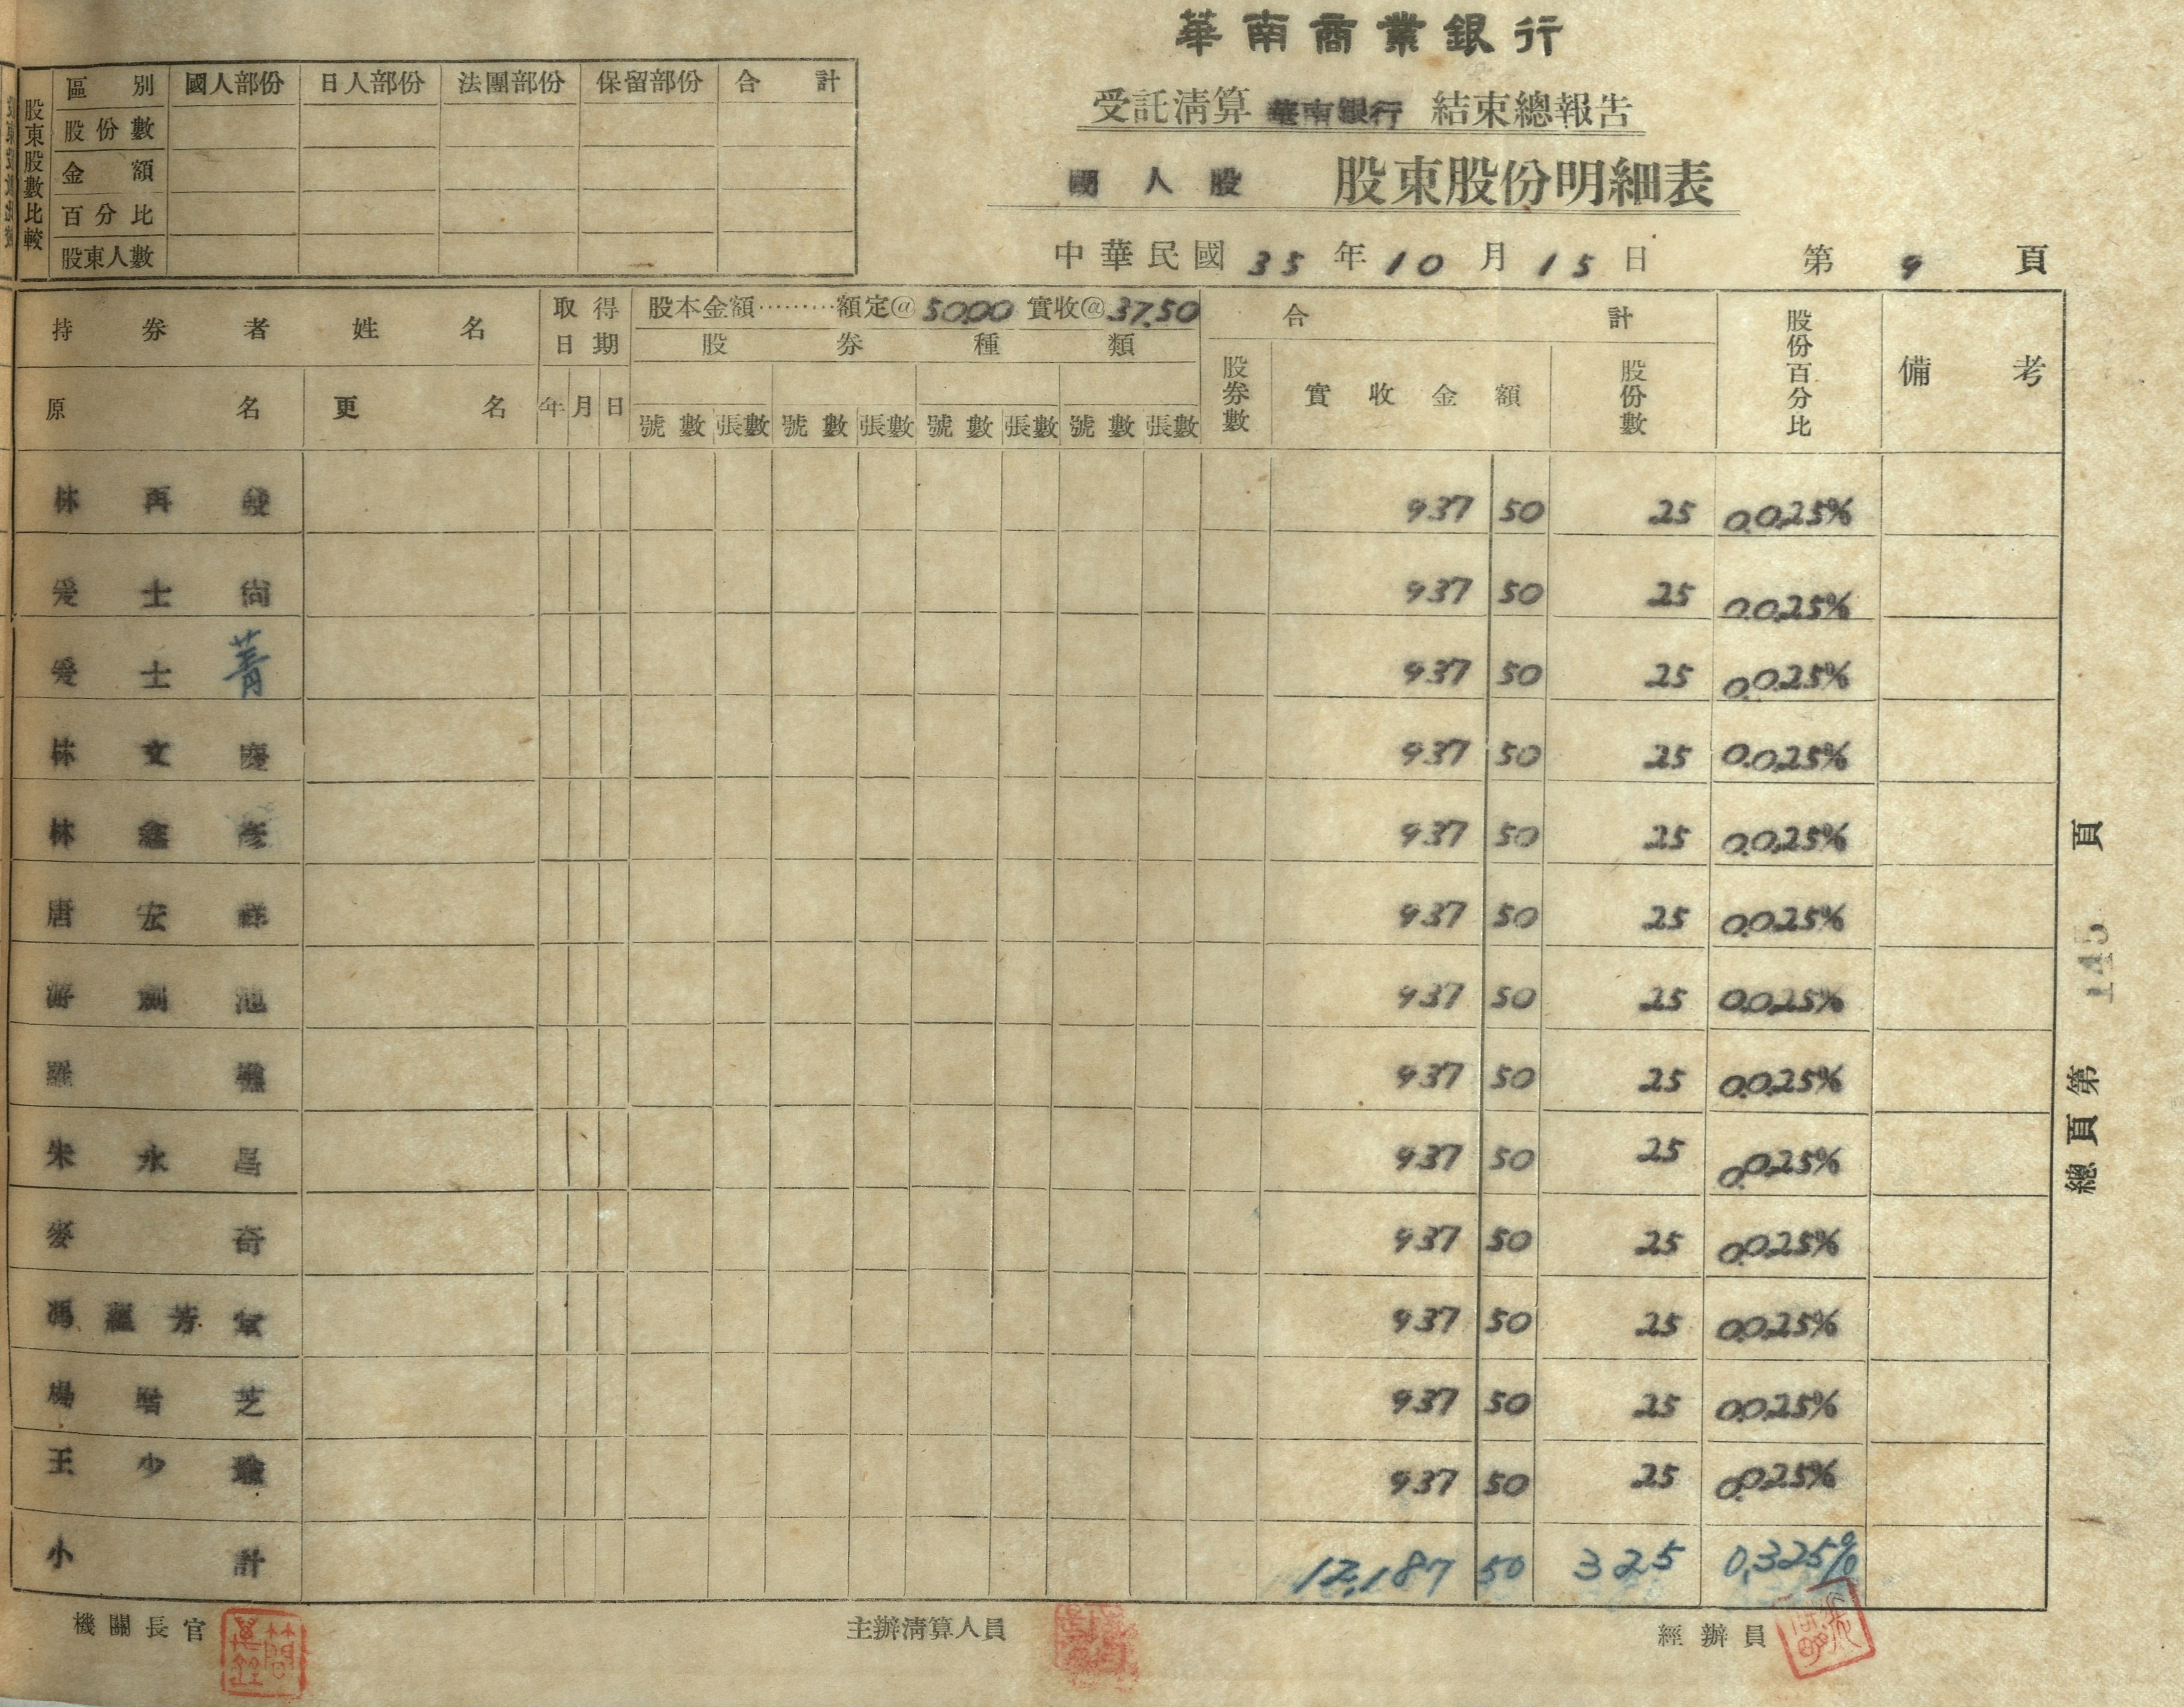 華南商業銀行
受託清算 華南銀行 結束總報告
國人股 股東股份明細表
中華民國 35 年 10 月 15 日 第 9 頁
股東股數比較
區別 國人部份 日人部份 法團部份 保留部份 合計
股份數
金額
百分比
股東人數
持券者姓名 取得日期 股本金額………額定@5000 實收@37.50 合計 股份百分比 備考
股券種類
原名 更名 年 月 日 號數 張數 號數 張數 號數 張數 號數 張數 股券數 實收金額 股份數
林再 937 50 25 0.025%
士尚 937 50 25 0.025%
士菁 937 50 25 0.025%
林文慶 937 50 25 0.025%
林鑫彥 937 50 25 0.025%
唐宏祥 937 50 25 0.025%
游池 937 50 25 0.025%
羅 937 50 25 0.025%
朱永昌 937 50 25 0.025%
麥奇 937 50 25 0.025%
馮蘊芳 937 50 25 0.025%
楊芝 937 50 25 0.025%
王少瑜 937 50 25 0.025%
小計 12,187 50 325 0.325%
機關長官 主辦清算人員 經辦員
總頁第 145 頁